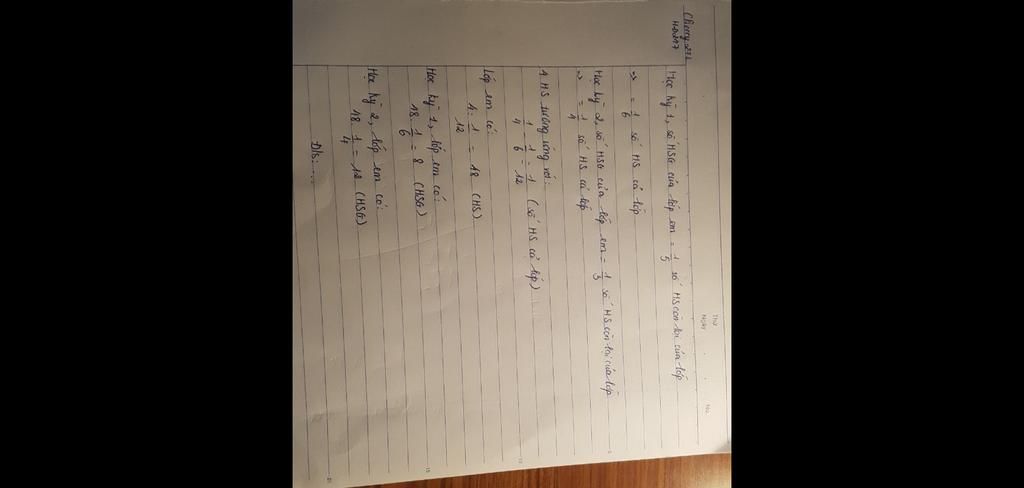 Thứ
Ngày
No.
Cherry
Học kỳ 1, số HSG của lớp em = 1/5 số HS còn lại của lớp
=> = 1/6 số HS cả lớp
Học kỳ 2, số HSG của lớp em = 1/3 số HS còn lại của lớp
=> = 1/4 số HS cả lớp
4 HS tương ứng với:
1/4 - 1/6 = 1/12 (số HS cả lớp)
Lớp em có:
4: 1/12 = 48 (HS)
Học kỳ 1, lớp em có:
48. 1/6 = 8 (HSG)
Học kỳ 2, lớp em có:
48. 1/4 = 12 (HSG)
Đ/s:....